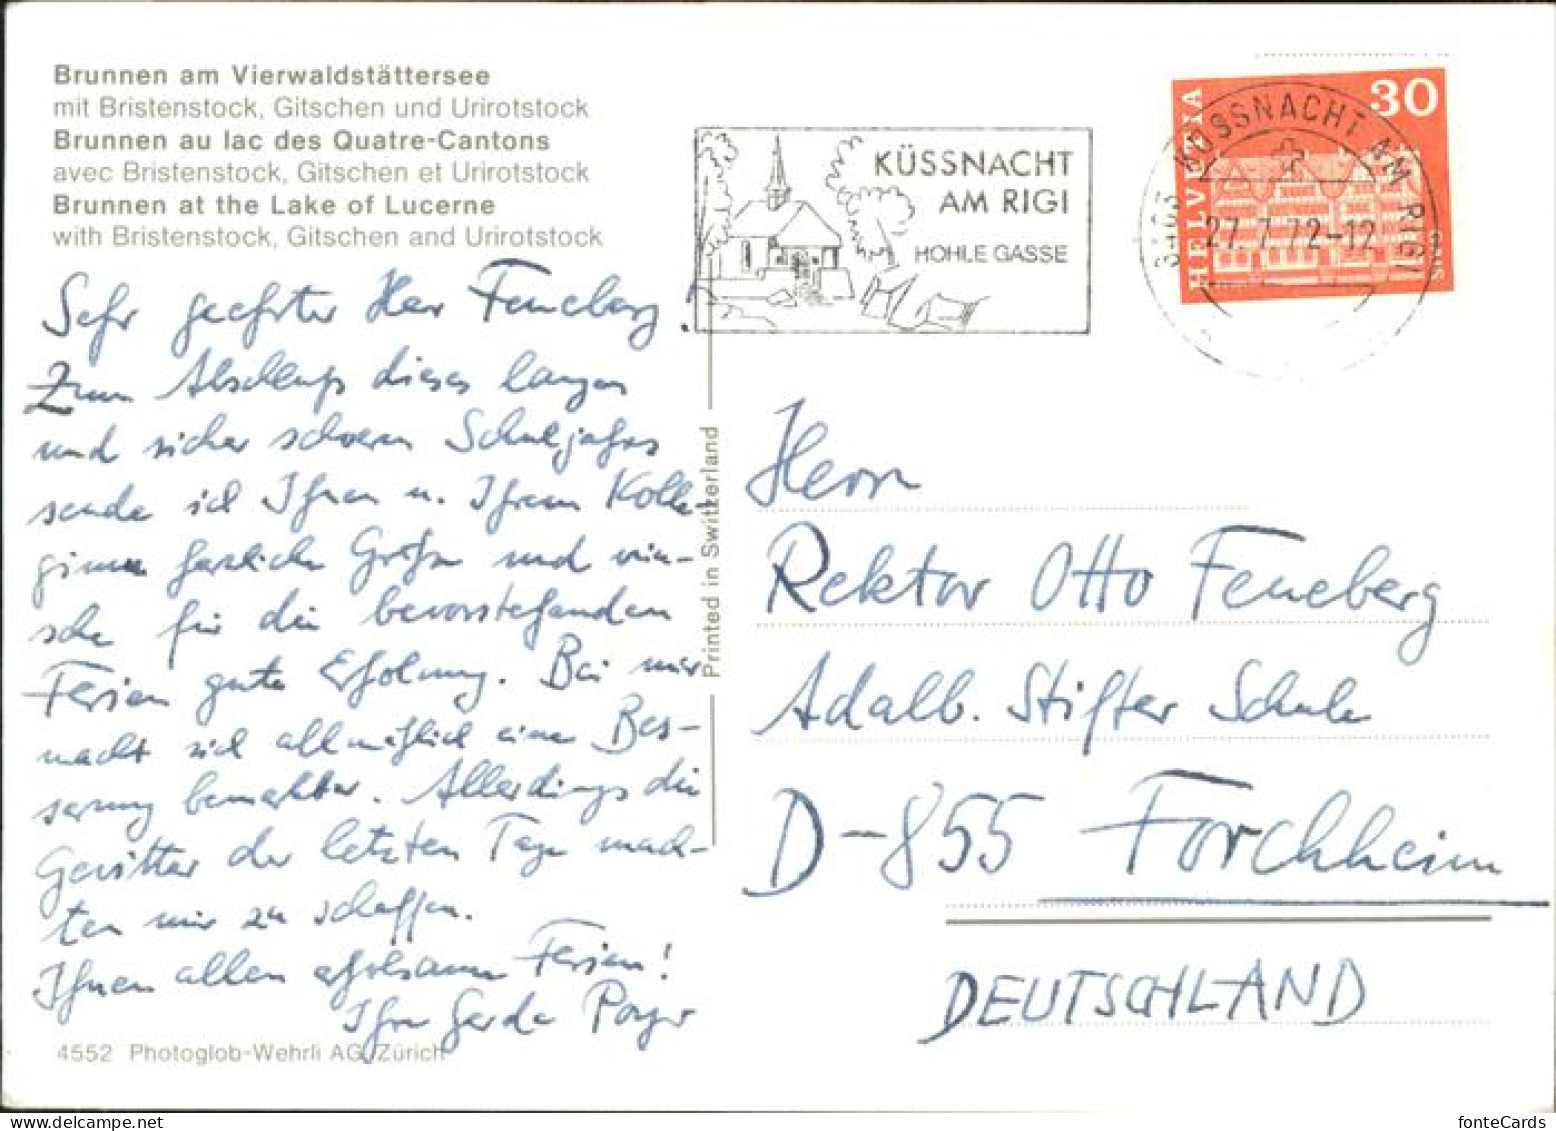 Brunnen am Vierwaldstättersee
mit Bristenstock, Gitschen und Urirotstock
Brunnen au lac des Quatre-Cantons
avec Bristenstock, Gitschen et Urirotstock
Brunnen at the Lake of Lucerne
with Bristenstock, Gitschen and Urirotstock
Sehr geehrter Herr Feneberg.
Zum Abschluß dieses langen
und sicher schweren Schuljahres
sende ich Ihnen u. Ihrem Kolle-
ginnen herzliche Grüße und wün-
sche für die bevorstehenden
Ferien gute Erholung. Bei mir
macht sich allmählich eine Bes-
serung bemerkbar. Allerdings die
Gewitter der letzten Tage mach-
ten mir zu schaffen.
Ihnen allen erholsame Ferien!
Ihre Gerda
4552 Photoglob-Wehrli AG, Zürich
Printed in Switzerland
KÜSSNACHT
AM RIGI
HOHLE GASSE
HELVETIA
30
6403 KÜSSNACHT AM RIGI
27.7.72-12
Herrn
Rektor Otto Feneberg
Adalb. Stifter Schule
D-855 Forchheim
DEUTSCHLAND
fonteCards